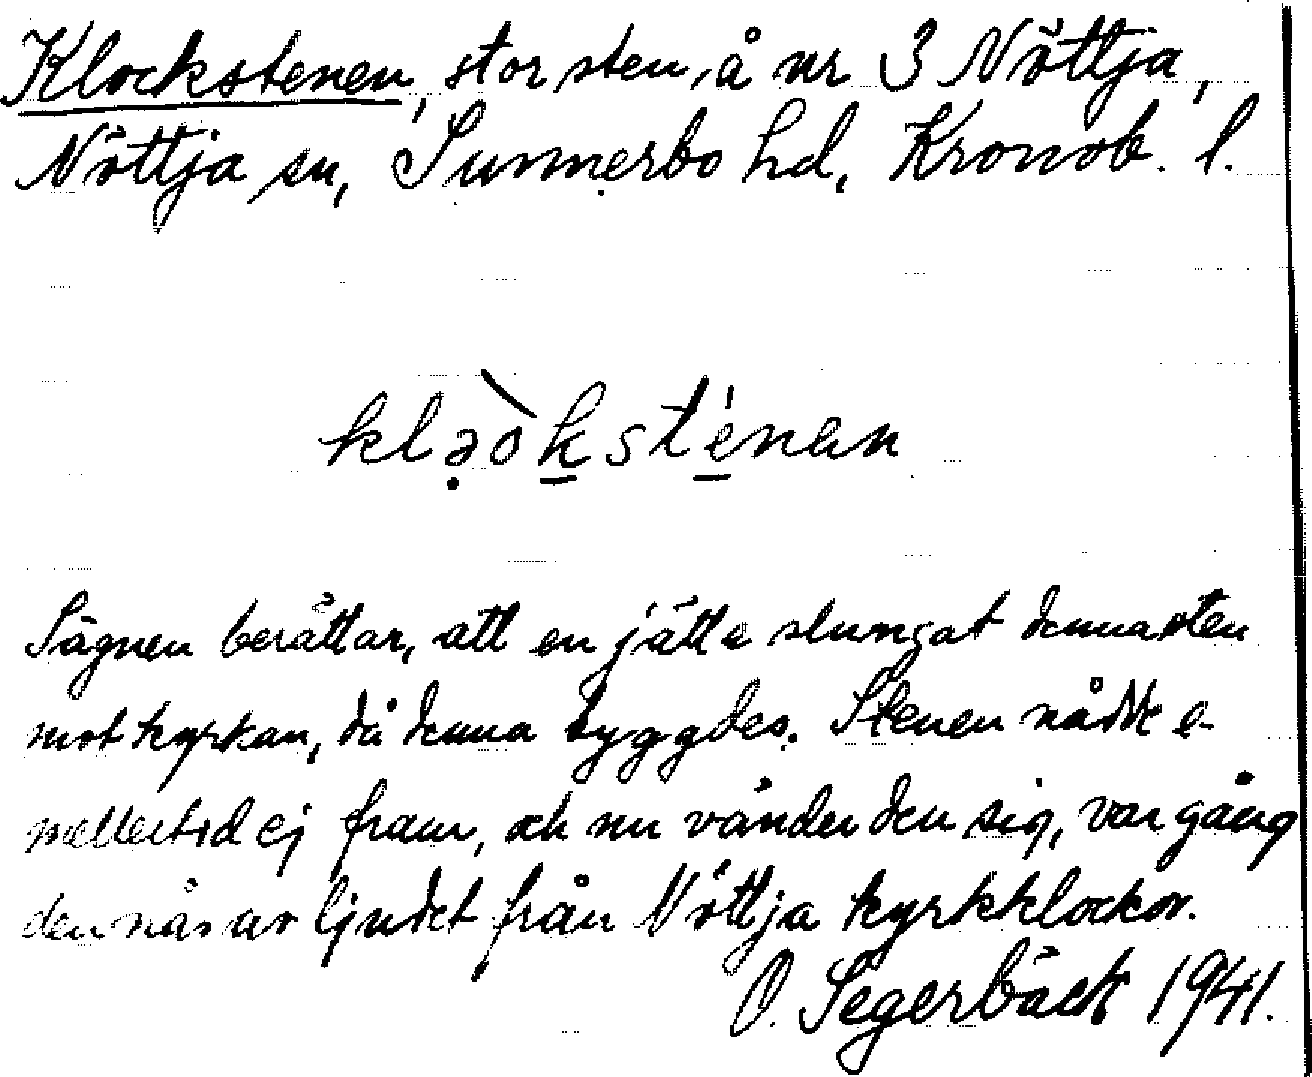 Klockstenen, stor sten, å nr 3 Nöttja,
Nöttja sn, Sunnerbo hd, Kronob. l.
kləòksténan
Sägnen berättar, att en jätte slungat denna sten
mot kyrkan, då denna byggdes. Stenen nådde e-
mellertid ej fram, och nu vänder den sig, var gång
den nås av ljudet från Nöttja kyrkklockor.
O. Segerbäck 1941.